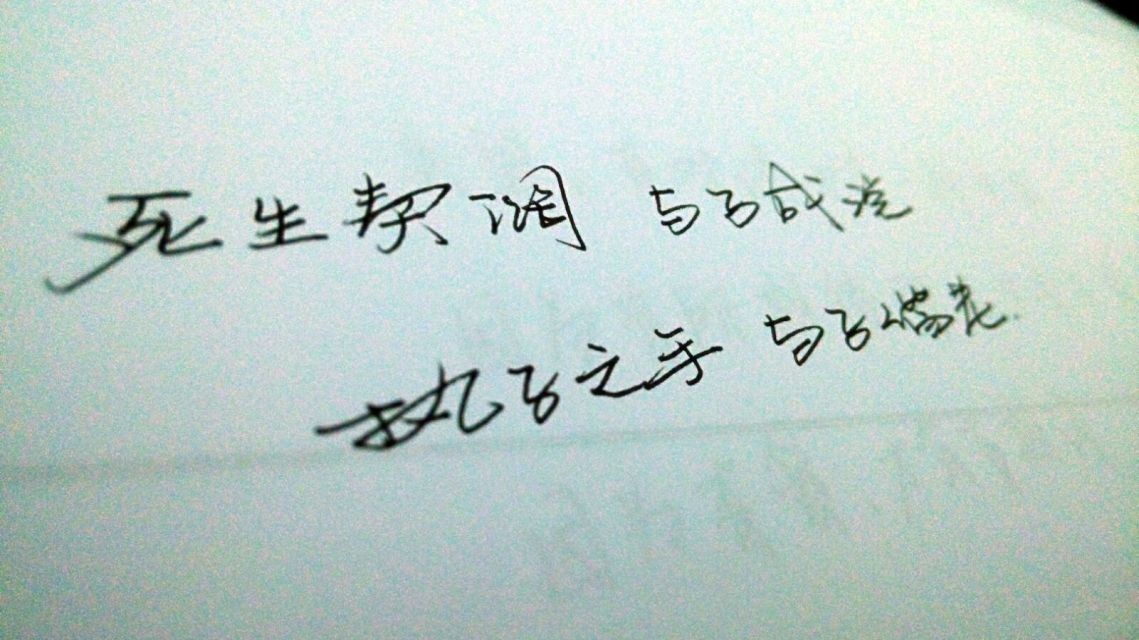 死生契阔 与子成说
执子之手 与子偕老